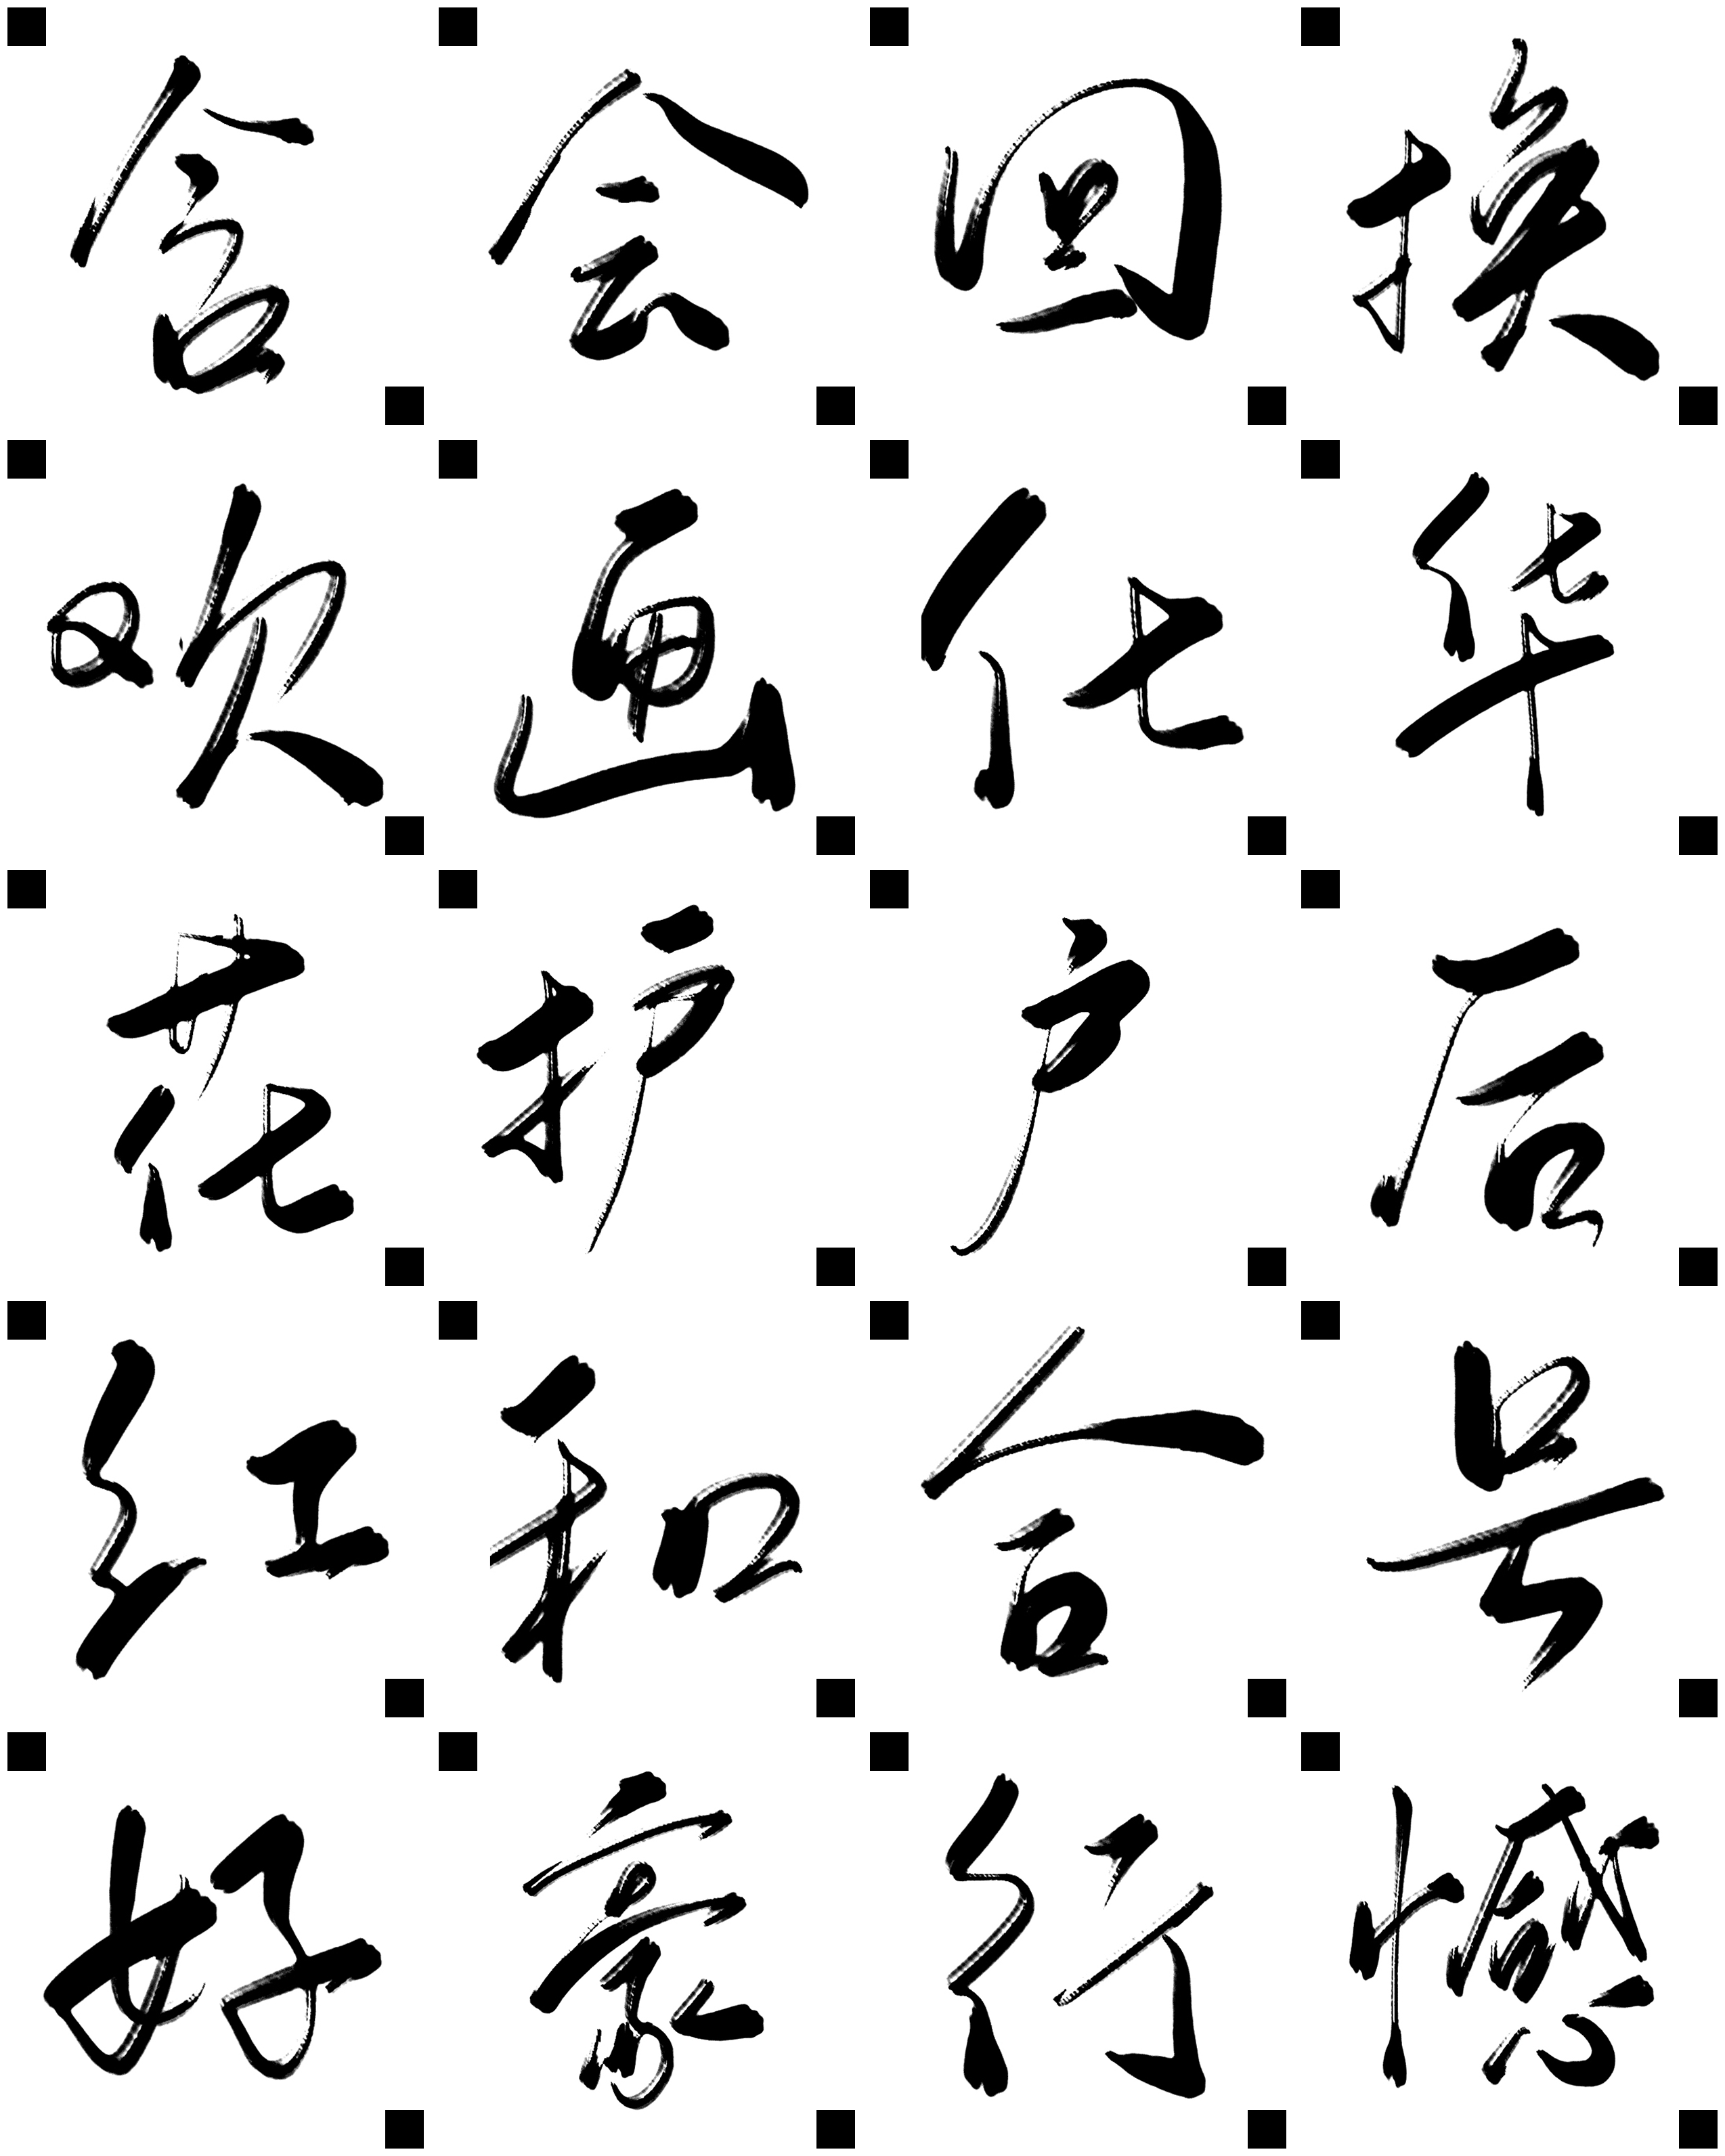 含会回换
吹画化华
花护户后
红和合号
好豪行憾